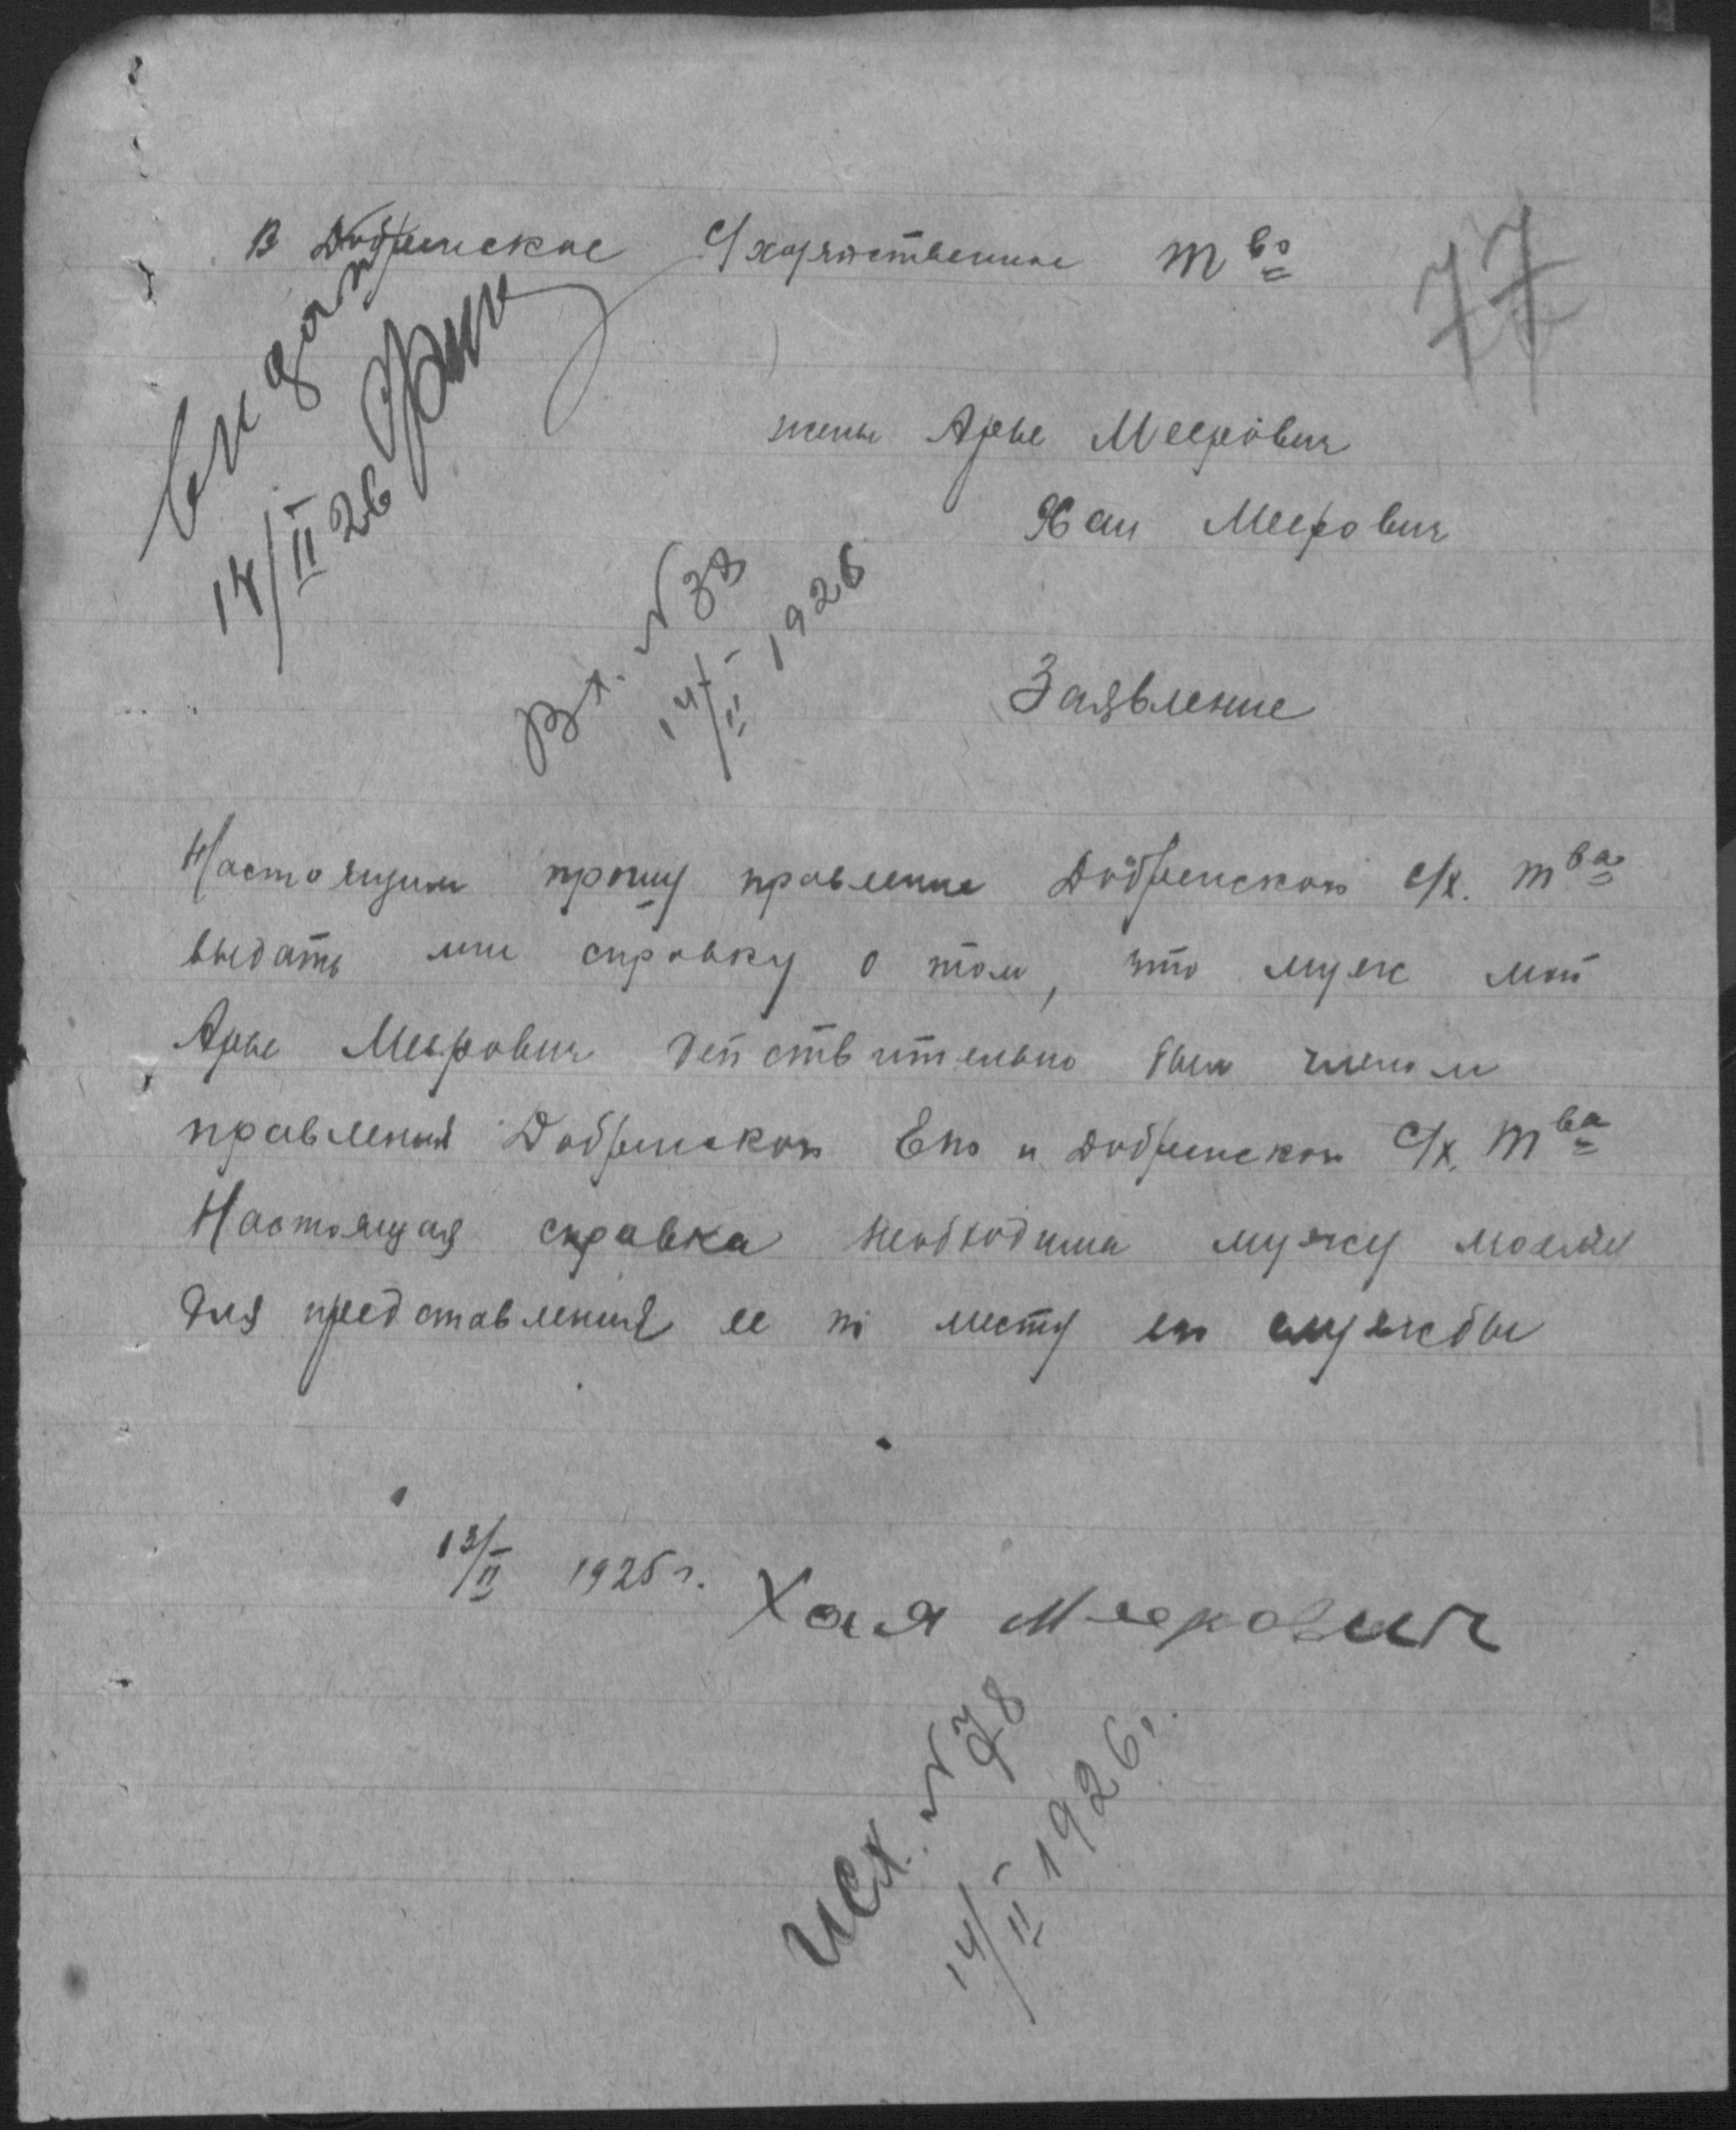 В Добринское с/хозяйственное т-во
77
выдать
14/II 26
жены Арье Меерович
Хаи Меерович
Вх. № 38
14/II 1926
Заявление
Настоящим прошу правление Добринского с/х. т-ва
выдать мне справку о том, что муж мой
Арье Меерович действительно был членом
правления Добринского Епо и Добринского с/х. т-ва
Настоящая справка необходима мужу моему
для представления ее по месту его службы
13/II 1925 г. Хая Меерович
Исх. № 78
14/II 1926 г.